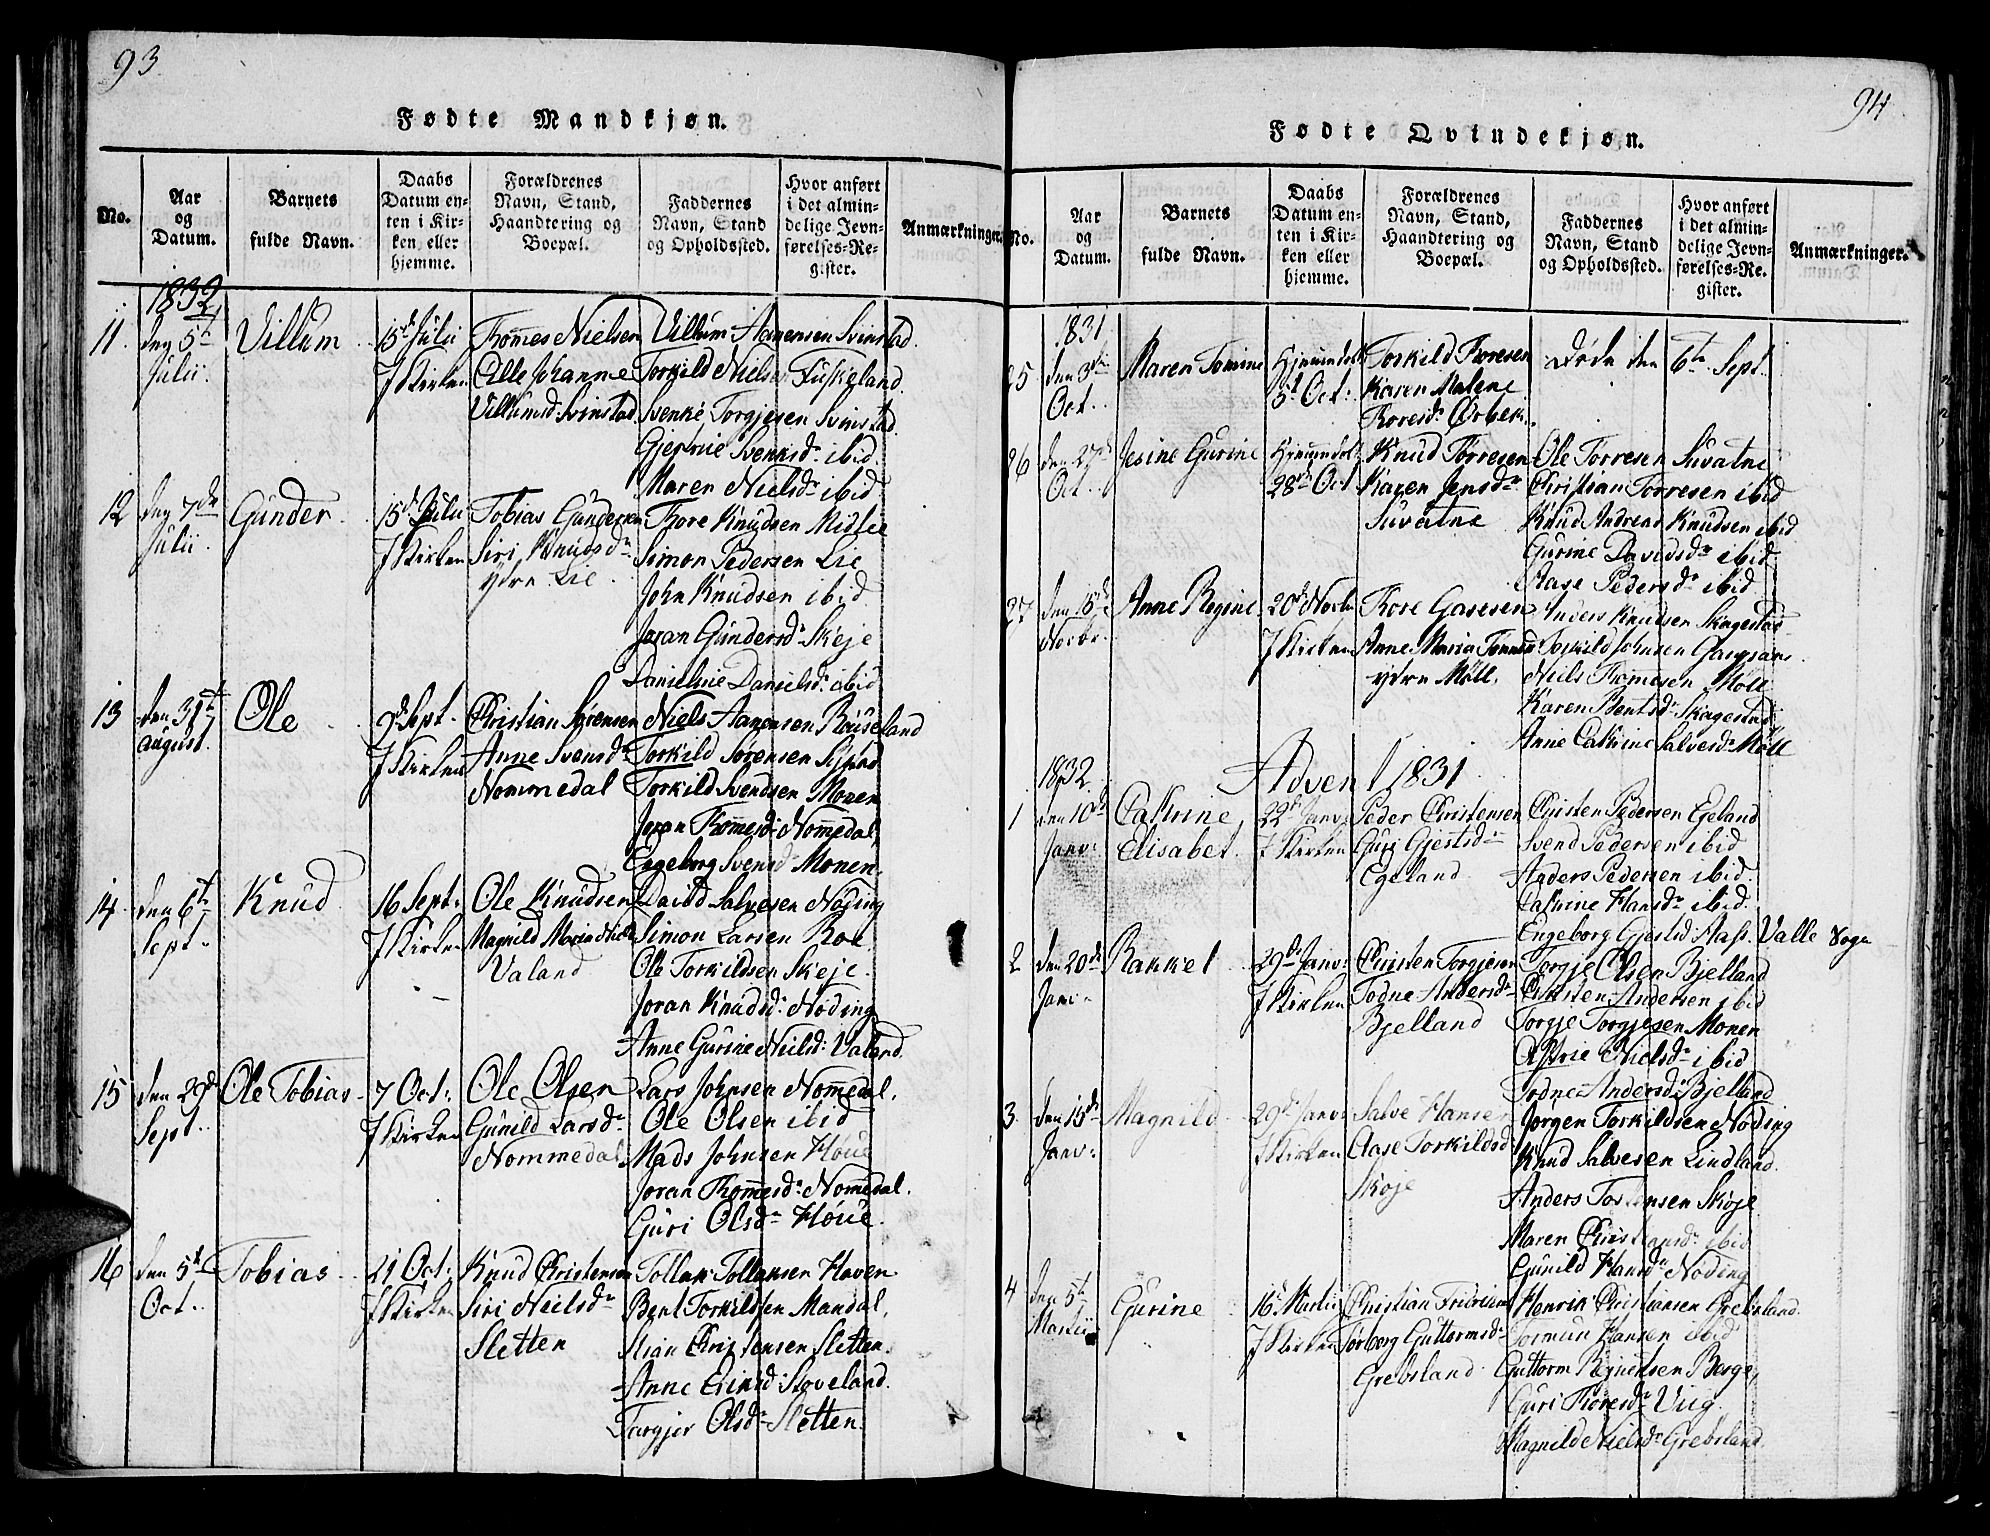 93
Fødte Mandkjøn.
No.
Aar
og
Datum.
Barnets
fulde Navn.
Daabs
Datum en-
ten i Kir-
ken eller
hjemme.
Forældrenes
Navn, Stand,
Haandtering og
Boepæl.
Faddernes
Navn, Stand
og Opholdssted.
Hvor anført
i det almin-
delige Jevn-
førelses-Re-
gister.
Anmærkninger.
1832
11 den 5te Julii.
Villum
15de Julii
I Kirken
Thomes Nielsen
Alle Johanne
Villumsd: Svinstad
Villum Aanensen Svinstad
Torkild Nielsen Fuskeland
Svenke Torgjesen Svinstad
Gjertrue Svenksdr ibid
Maren Nielsdr ibid
12 den 7de Julii.
Gunder
15de Julii
I Kirken
Tobias Gundersen
Siri Knudsdr
ydre Lie
Thore Knudsen Midlie
Simon Pedersen Lie
John Knudsen ibid
Joran Gundersdr Skeje
Danielnie Danielsdr: ibid
13 den 31te August.
Ole
9de Sept.
I Kirken
Christian Sørensen
Anne Svensdr
Nommedal
Niels Aanensen Røuseland
Torkild Sørensen
Torkild Svendsen Monen
Joran Thomesdr Nomedal
Engeborg Svensd: Monen
14 den 6te Sept.
Knud
16 Sept:
I Kirken
Ole Knudsen
Magnild Maria Nielsdr
Valand
David Salvesen Nøding
Simon Larsen Roe
Ole Torkildsen Skeje
Joran Knudsdr Nøding
Anne Gurine Neilsd: Valand
15 den 29de Sept.
Ole Tobias
7 Oct:
I Kirken
Ole Olsen
Gunild Larsdr
Nommedal
Lars Johnsen Nomedal
Ole Olsen ibid
Mads Johnsen Høue
Joran Thomesdr Nomedal
Guri Olsdr Høue
16 den 5te Oct.
Tobias
21 Oct:
I Kirken
Knud Christensen
Siri Neilsdr
Sletten
Tollak Tollaksen Haven
Bent Torkildsen Mandal
Stian Christensen Sletten
Anne Erik̄sd: Stoveland
Targjer Olsdr Sletten
94
Fødte Qvindekjøn.
No.
Aar
og
Datum.
Barnets
fulde Navn.
Daabs
Datum en-
ten i Kir-
ken eller
hjemme.
Forældrenes
Navn, Stand,
Haandtering og
Boepæl.
Faddernes
Navn, Stand
og Opholdssted.
Hvor anført
i det almin-
delige Jevn-
førelses-Re-
gister.
Anmærkninger.
1831
25 den 3die Oct.
Maren Tomine
Hjemmedøbt
5t Oct:
Torkild Thoresen
Karen Malene
Thoresdr
Døde den 6te Sept.
26 den 27de Oct.
Jesine Gurine
Hjemmedøbt
28de Oct
Knud Torresen
Karen Jensdr
Suvatne
Ole Torresen Suvatne
Christian Torresen ibid
Knud Andreas Knudsen ibid
Gurine Davidsdr ibid
Aase Pedersdr ibid
27 den 15de Novbr.
Anne Regine
20de Novbr
I Kirken
Thore Gasesen
Anne Maria
ydre Møll.
Anders Knudsen Skagestad
Torkild Johnsen
Niels Thomesen Møll
Karen Bentsdr Skagestad
Anne Cathrine Salvesdr Møll
1832
Advent 1831
1 den 10de Janv:
Cathrine
Elisabet
22de Janv:
I Kirken
Peder Christensen
Guri Gjestsdr
Egeland
Christen Pedersen Egeland
Svend Pedersen ibid
Anders Pedersen ibid
Cathrine Hansdr ibid
Engeborg Gjestsd: Aas. Valle Sogn
2 den 20de Janv.
Rakkel
29de Janv:
I Kirken
Christen Torgjesen
Todne Andersdr
Bjelland
Torgje Olsen Bjelland
Christen Andersen ibid
Torgje Torgjesen Monen
Astrie Nielsdr ibid
Todne Andersd: Bjelland
3. den 15de Janv:
Magnild
29de Janv
I Kirken
Salve Hansen
Aase Torkildsd
Skøje
Jørgen Torkildsen Nøding
Knud Salvesen Lindland
Anders Torkelsen Skøje
Maren Christiansdr ibid
Gunild Hansdr Nøding
4 den 5te Martii
Gurine
16 Martii
I Kirken
Christian
Torborg Guttormsdr
Grebsland
Henrik Christiansen Grebsland
Tormun Hansen ibid
Guttorm Berge
Guri Thoresdr Uiig
Magnild Nielsdr Grebsland